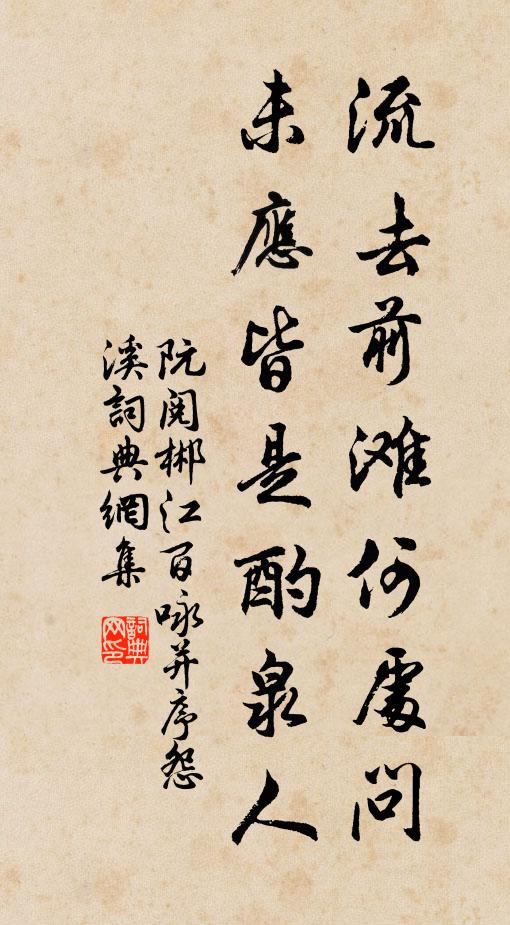 流去前滩何處問
未應皆是酌泉人
阮閱郴江百咏并序怨
溪詞典網集
詞典
网印